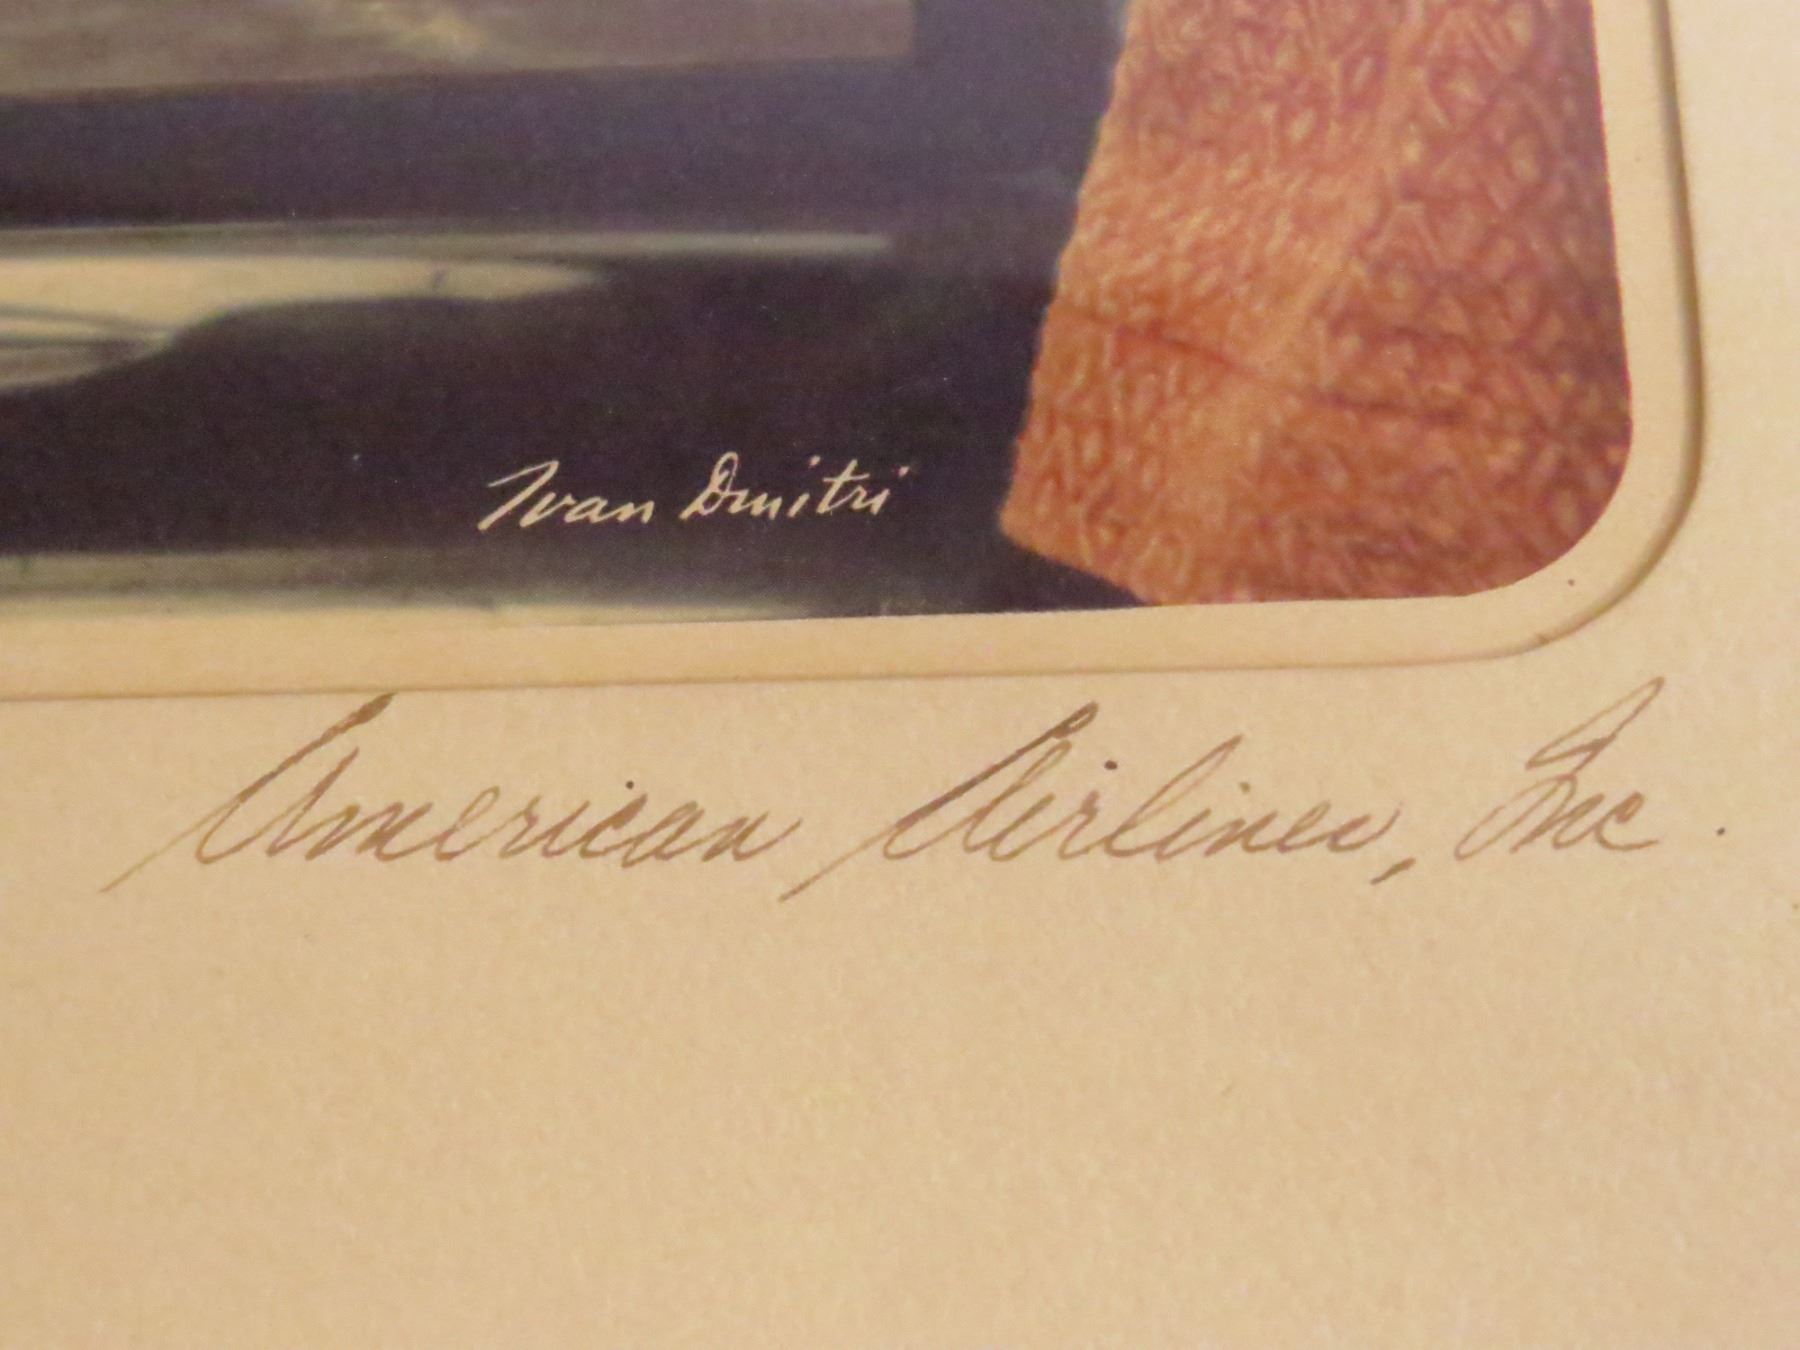 Ivan Dmitri
American Airlines, Inc.